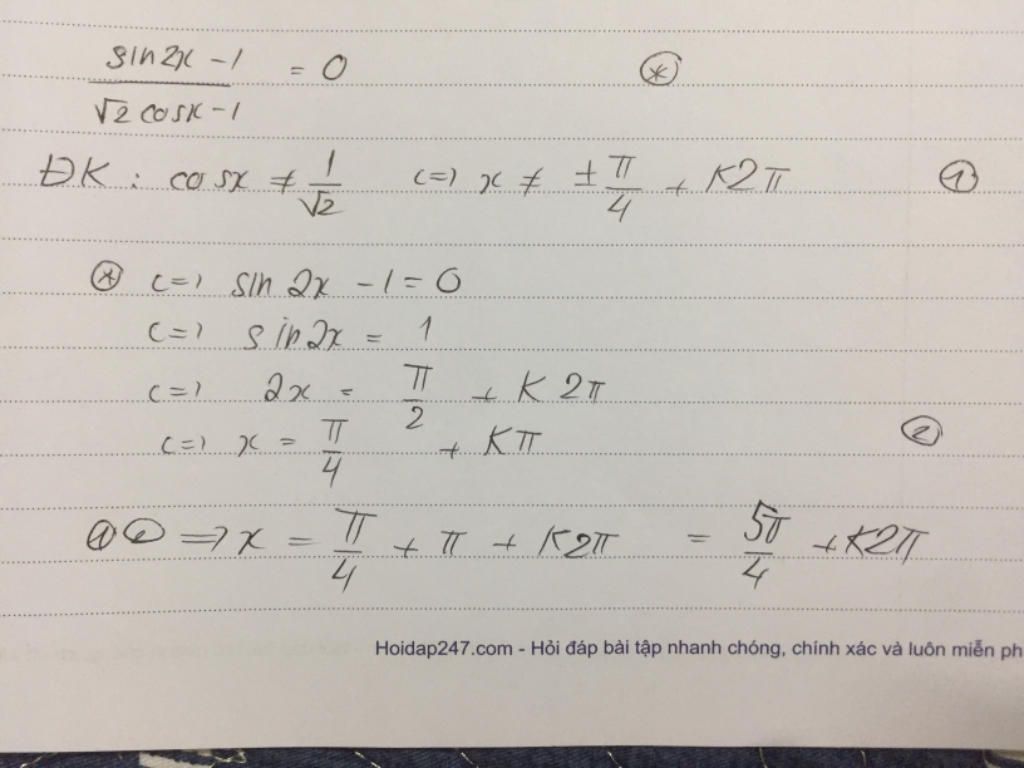 sin2x - 1 / √2 cosx - 1 = 0 (*)
ĐK : cosx ≠ 1/√2 <=> x ≠ ± π/4 + K2π (1)
(*) <=> sin 2x - 1 = 0
<=> sin2x = 1
<=> 2x = π/2 + K2π
<=> x = π/4 + Kπ (2)
(1)(2) => x = π/4 + π + K2π = 5π/4 + K2π
Hoidap247.com - Hỏi đáp bài tập nhanh chóng, chính xác và luôn miễn ph